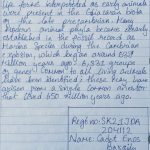 life forms interpreted as early animals
were present in the Ediacaran biota
of the late precambrian. Many
modern animal phyla became clearly
established in the fossil record as
Marine Species during the Cambrian
explosion which began around
million years ago. 6,331 groups
of genes common to all living animals
have been identified; these may have
arisen from a single common ancestor
that lived 650 million years ago.
Regt no: SK21JDA
204112
Name: Cadet